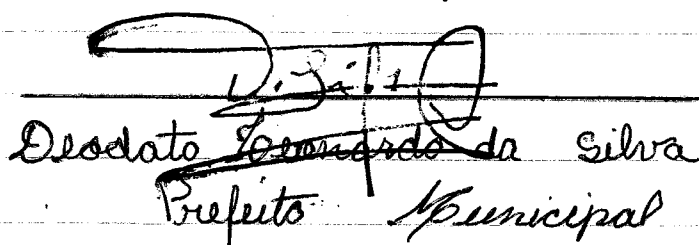 Deodato Leonardo da Silva
Prefeito Municipal